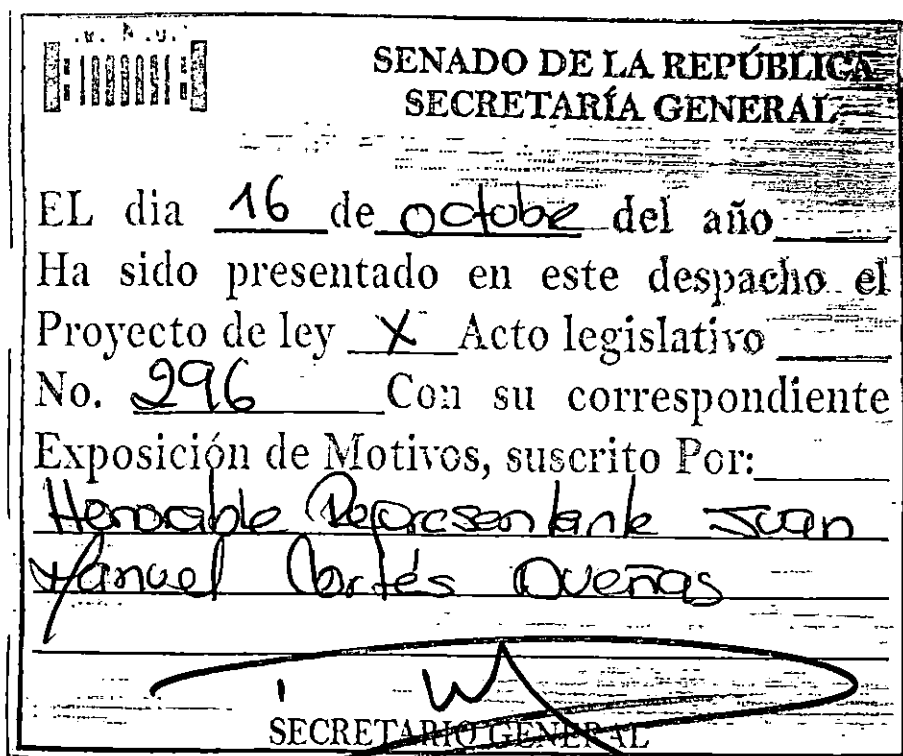 SENADO DE LA REPÚBLICA
SECRETARÍA GENERAL
EL dia 16 de octubre del año
Ha sido presentado en este despacho el
Proyecto de ley X Acto legislativo
No. 296 Con su correspondiente
Exposición de Motivos, suscrito Por:
Honorable Representante Juan
Manuel Cortés Dueñas
SECRETARIO GENERAL